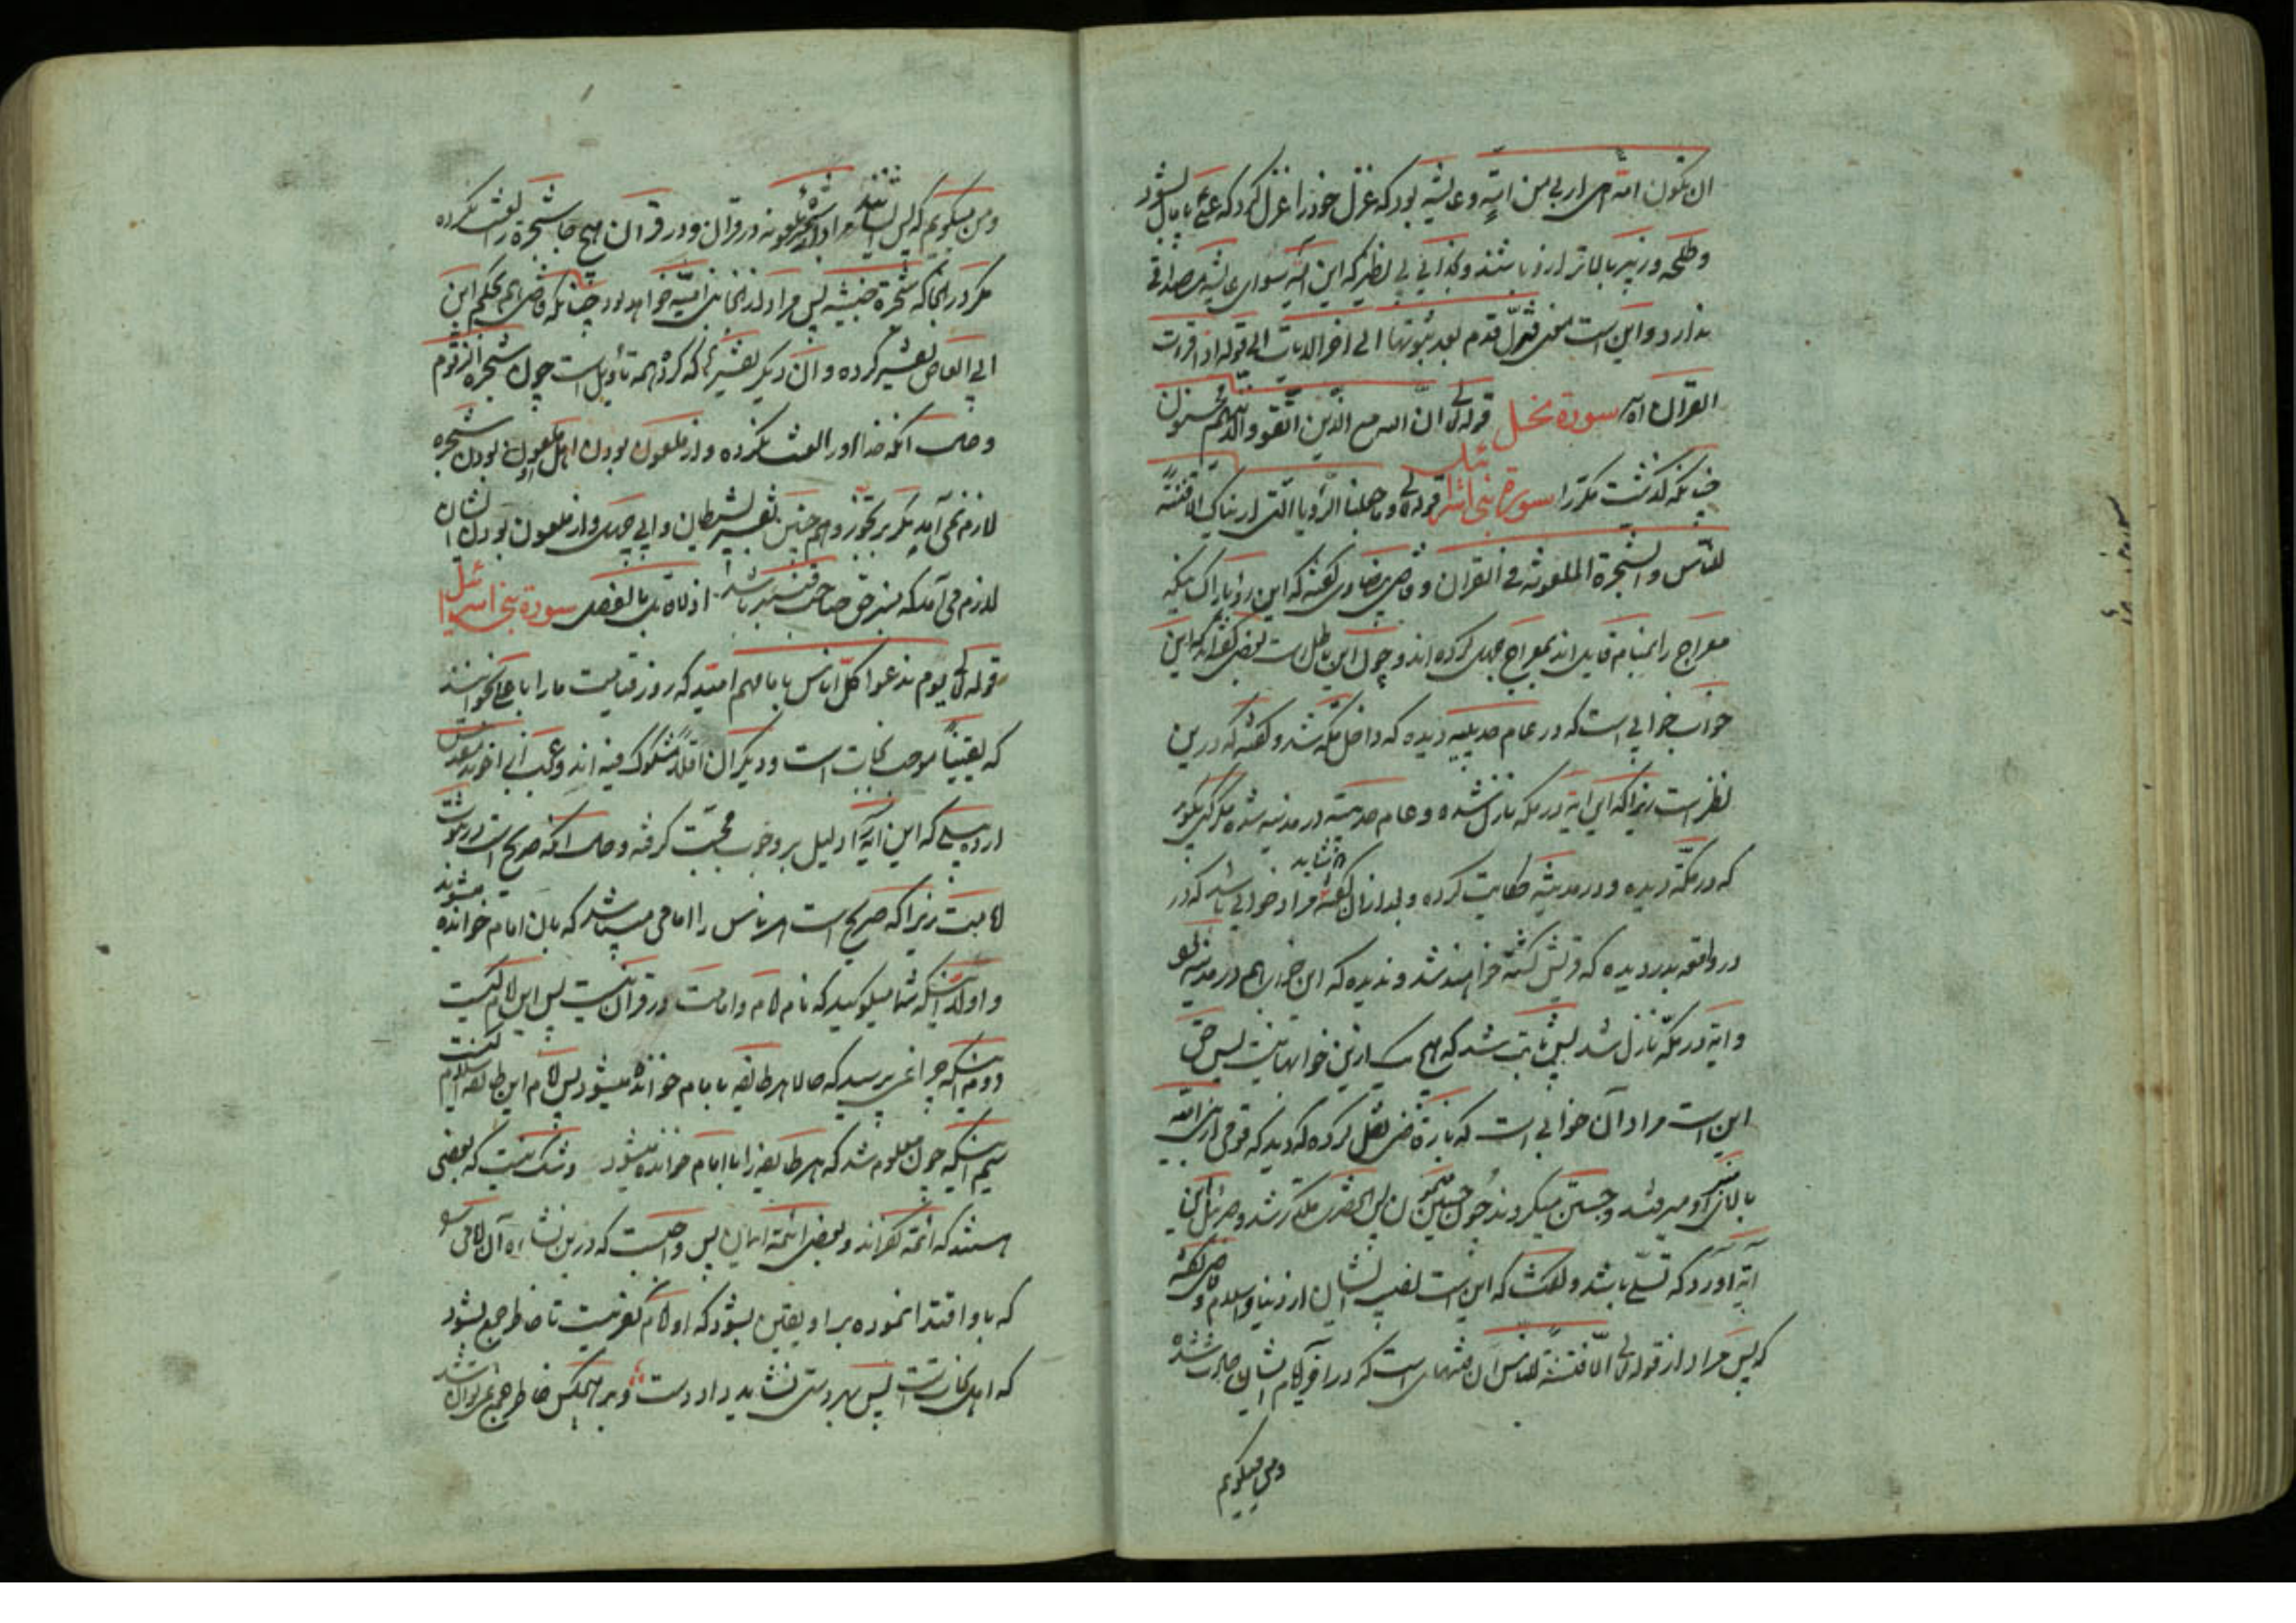 ان تکون امة هی اربی من امة و عایشه بود که غزل خود را غزل کرد که علی پامال بشود
و طلحه و زبیر بالاتر ازو باشند و بی نظیر که این آیه سوای عایشه مصداقی
ندارد و این است معنی فتزل قدم بعد ثبوتها الی اخر الایات الی قوله اذا قرات
القران آه سورة نحل قوله تع ان الله مع الذین اتقوا والذین هم محسنون
چنانکه گذشت مکررا سورة بنی اسرائیل قوله تع وما جعلنا الرؤیا التی اریناک الا فتنة
للناس والشجرة الملعونة فی القران و قاضی بیضاوی گفته که این رؤیا را
معراج را بمنام قایل اند بمعراج حمل کرده اند و چون این باطل است بعضی گفته اند که این
خواب خوابی است که در عام حدیبیه دیده که داخل مکه شد و گفته که درین
نظر است زیرا که این آیه در مکه نازل شده و عام حدیبیه در مدینه شده مگر که بگویم
که در مکه دیده و در مدینه حکایت کرده و بعد ازان گفته شاید مراد خوابی باشد که در
در واقعه بدر دیده که قریش کشته خواهند شد و ندیده که این خواب هم در مدینه بود
و آیه در مکه نازل شد پس ثابت شد که هیچ یک ازین خوابها نیست پس حق
این است مراد آن خوابی است که باز قاضی نقل کرده که دید که قومی از بنی امیه
بالای منبر او میرفتند و جستن میکردند چون میمون پس آنحضرت مکدر شد و جبرئیل این
آیه آورد که تسلی باشد و گفت که این است نصیب ایشان از دنیا و اسلام و قاضی گفته
که پس مراد از قوله تع الا فتنة للناس آن فتنهای است که در ایام ایشان حادث شده
ومن میگویم
ومن میگویم که پس ایشانند مراد از شجره ملعونه در قران و در قران هیچ جا شجره را لعنت نکرده
مگر در انجا که شجرة خبیثه پس مراد در انجا بنی امیه خواهد بود چنانکه قاضی هم بحکم ابن
ابی العاص تفسیر کرده و آن دیگر تفسیرها که کرده همه تأویل است چون شجره الزقوم
و حال آنکه خدا او را لعنت نکرده و از ملعون بودن اهل ملعون بودن شجره
لازم نمی آید مگر بر تجوز و هم چنین تفسیر بشیطان و ابی جهل و از ملعون بودن ایشان
لازم می آید که منبر حق صاحب منبر باشد اذ لا قایل بالفصل سورة بنی اسرائیل
قوله تع یوم ندعوا کل اناس بامامهم امید که روز قیامت ما را با علی بخوانند
که یقیناً موجب نجات است و دیگران اقلاً مشکوک فیه اند و عجب از اخوند مقدس
اردبیلی که این آیه را دلیل بر وجوب محبت گرفته و حال آنکه صریح است در ثبوت
امامت زیرا که صریح است هر ناس را امامی میباشد که بان امام خوانده میشوند
و اولاً اینکه شما میگویید که نام امام و امامت در قران نیست پس این امام کیست
دویم اینکه چرا نمی پرسید که حالا هر طایفه با امام خوانده میشود پس امام این طایفه اسلام کیست
سیم اینکه چون معلوم شد که هر طایفه را با امام خوانده میشود و شک نیست که بعضی
هستند که ائمه کفراند و بعضی ائمه ایمان پس واجب است که درین نشاه آن امامی
که باو اقتدا نموده بر او یقین بشود که او امام کفر نیست تا خاطر جمع بشود
که اهل نجات است پس بهر دستی نشاید داد دست و بر هیچکس خاطر جمع نمی توان شد